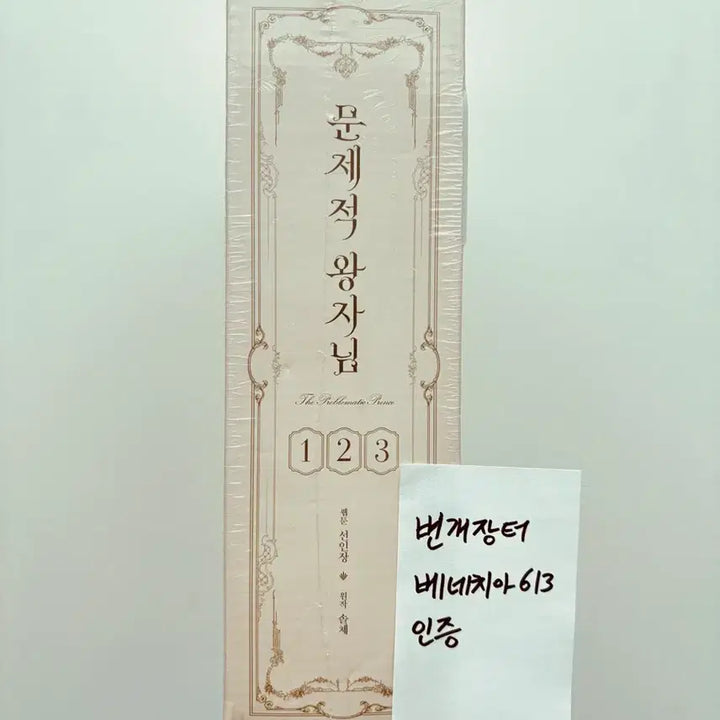 문제적 왕자님
The Problematic Prince
1 2 3
웹툰 선인장 원작 솔체
번개장터
베네치아613
인증